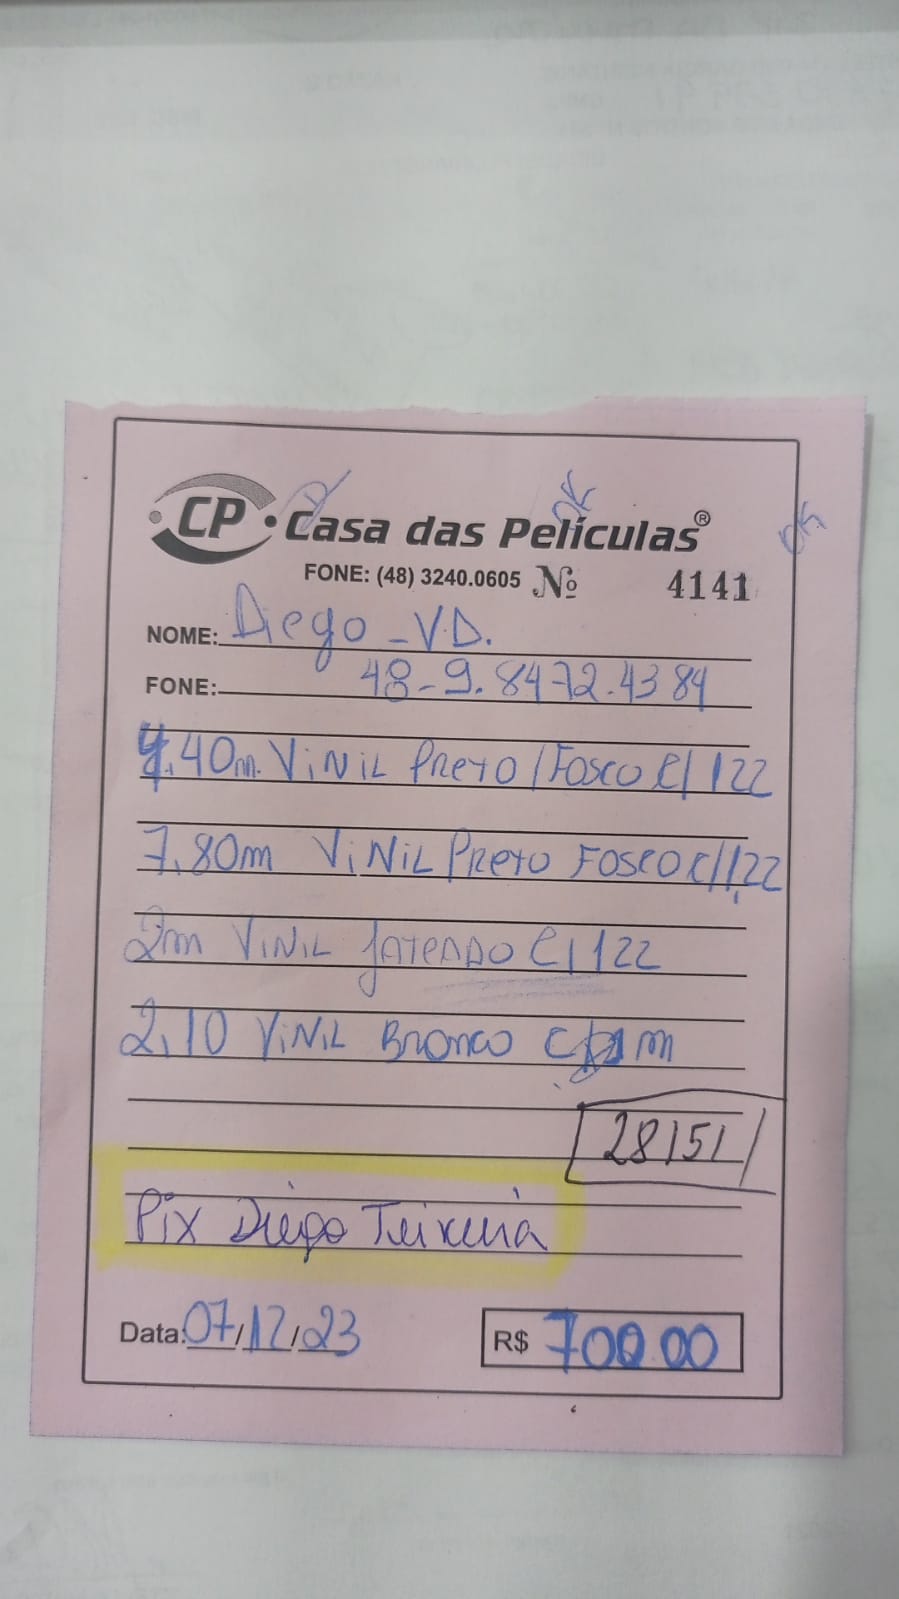 CP Casa das Películas®
OK
OK
FONE: (48) 3240.0605 Nº 4141
NOME: Diego - V.D.
FONE: 48-9.8472.4384
4,40m. VINIL PRETO/FOSCO C/ 122
7,80m VINIL PRETO FOSCO C/ 1,22
2m VINIL JATEADO C/ 122
2,10 VINIL BRANCO C/ 1m
28151
Pix Diego Teixeira
Data: 07/12/23 R$ 700.00